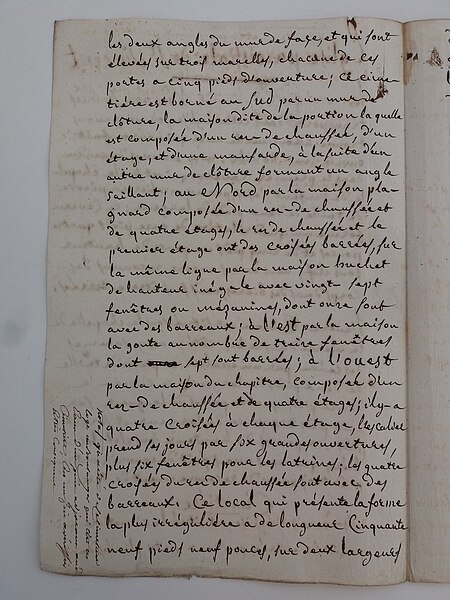 les deux angles du mur de face, et qui sont
élevées sur trois marelles, chacune de ces
portes a cinq pieds d'ouverture; Ce cime-
tière est borné au Sud par un mur de
clôture, la maison dite de la portion la quelle
est composée d'un rez-de chaussée, d'un
étage, et d'une mansarde, à la suite d'un
autre mur de clôture formant un angle
saillant; au Nord par la maison pla-
gnard composée d'un rez-de chaussée et
de quatre étages, le rez de chaussée et le
premier étage ont des croisées barrées, sur
la même ligne par la maison buchet
de hauteur inégale avec vingt sept
fenêtres ou mézanines, dont onze sont
avec des barreaux; à l'est par la maison
la goute au nombre de treize fenêtres
dont sept sont barrées; à l'ouest
par la maison du chapitre, composée d'un
rez-de chaussée et de quatre étages; il y a
quatre croisées à chaque étage, l'escalier
prend ses jours par six grandes ouvertures,
plus six fenêtres pour les latrines; les quatre
croisées du rez de chaussée sont avec des
barreaux. Ce local qui présente la forme
la plus irrégulière a de longueur Cinquante
neuf pieds neuf pouces, sur deux largeurs